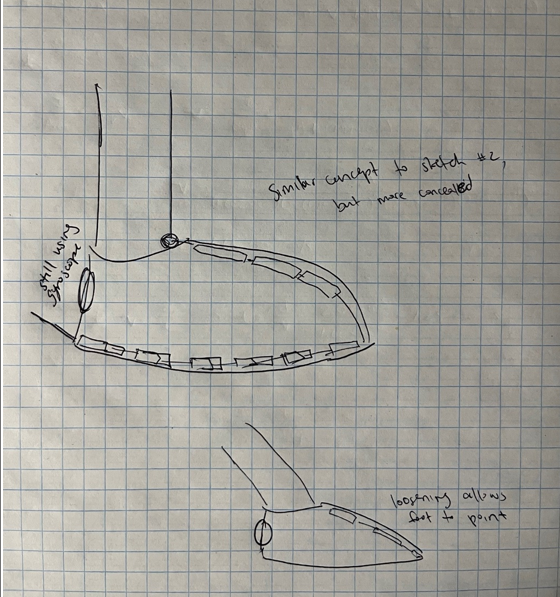 Similar concept to sketch #2,
but more concealed
still using
gyroscope
loosening allows
foot to point